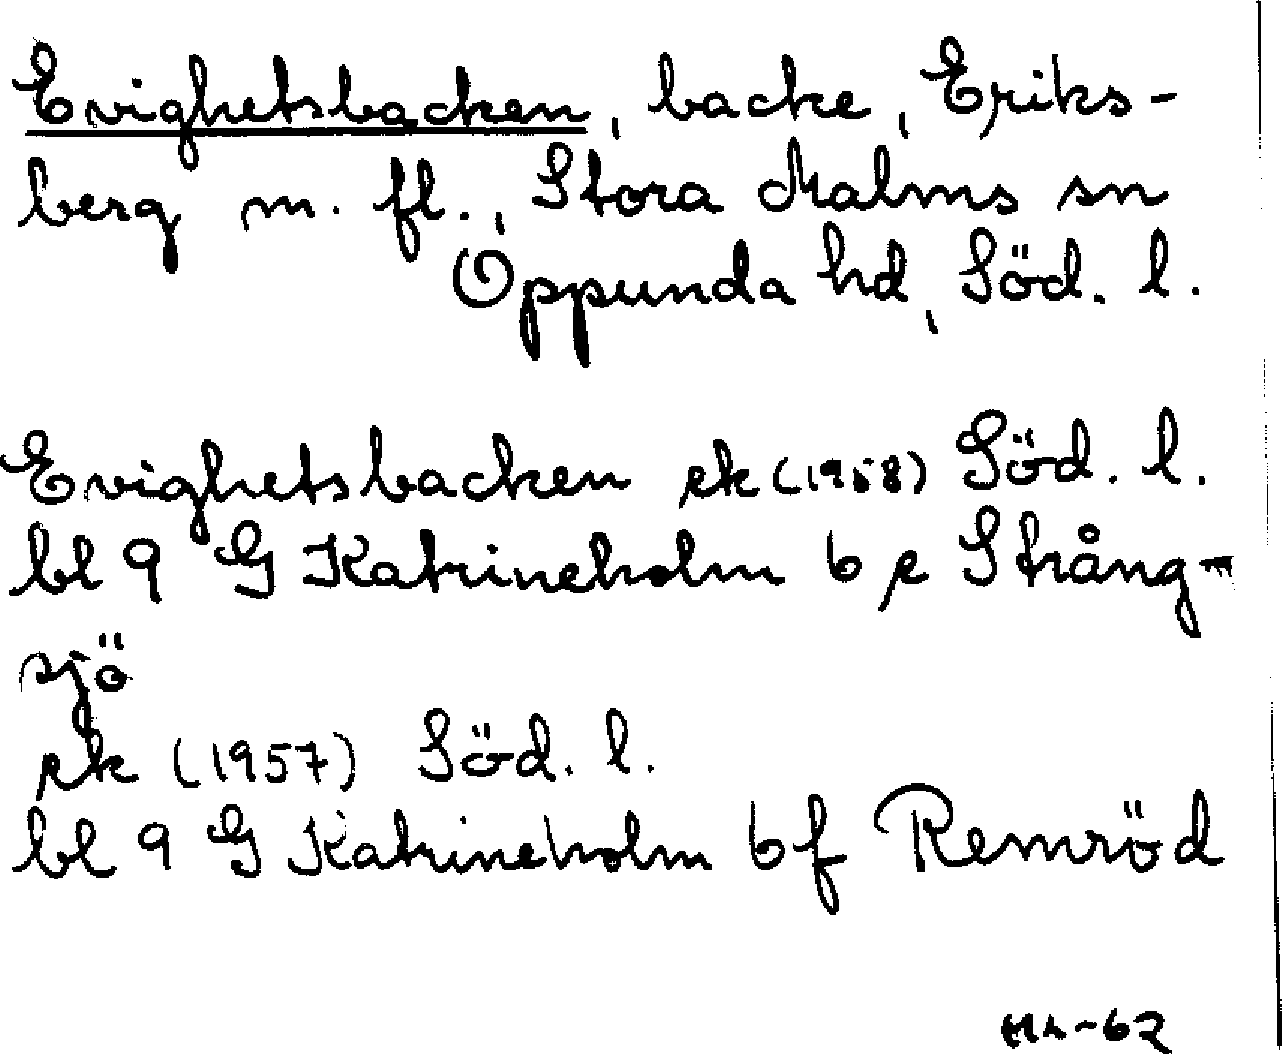 Evighetsbacken, backe, Eriks-
berg m. fl., Stora Malms sn
Oppunda hd, Söd. l.
Evighetsbacken ek (1958) Söd. l.
bl 9 G Katrineholm 6 e Strång-
sjö
ek (1957) Söd. l.
bl 9 G Katrineholm 6 f Remröd